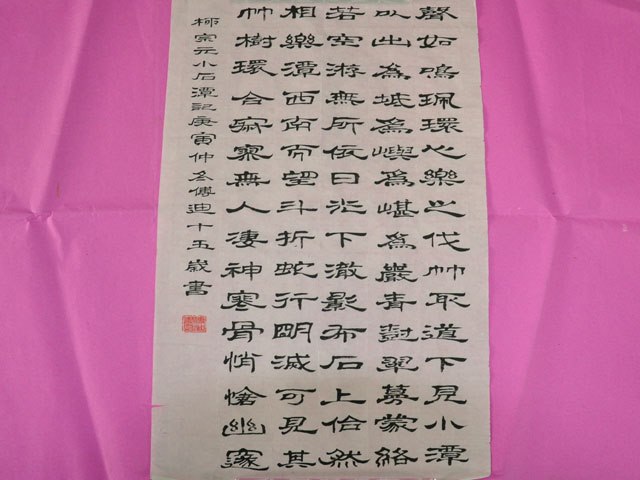 聲如鳴珮環心樂之伐竹取道下見小潭
以出為坻為嶼為嵁為巖青樹翠蔓蒙絡
若空游無所依日光下澈影布石上佁然
相樂潭西南而望斗折蛇行明滅可見其
竹樹環合寂寥無人凄神寒骨悄愴幽邃
柳宗元小石潭記庚寅仲冬傅迪十五歲書